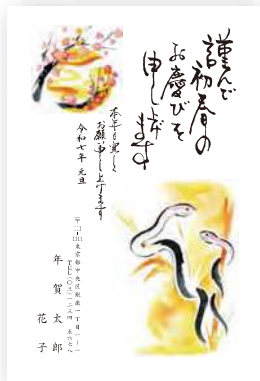 謹んで
初春の
お慶びを
申し上げ
ます
本年も宜しく
お願い申し上げます
令和七年 元旦
東京都中央区銀座一丁目一−一
年賀 太郎
花子